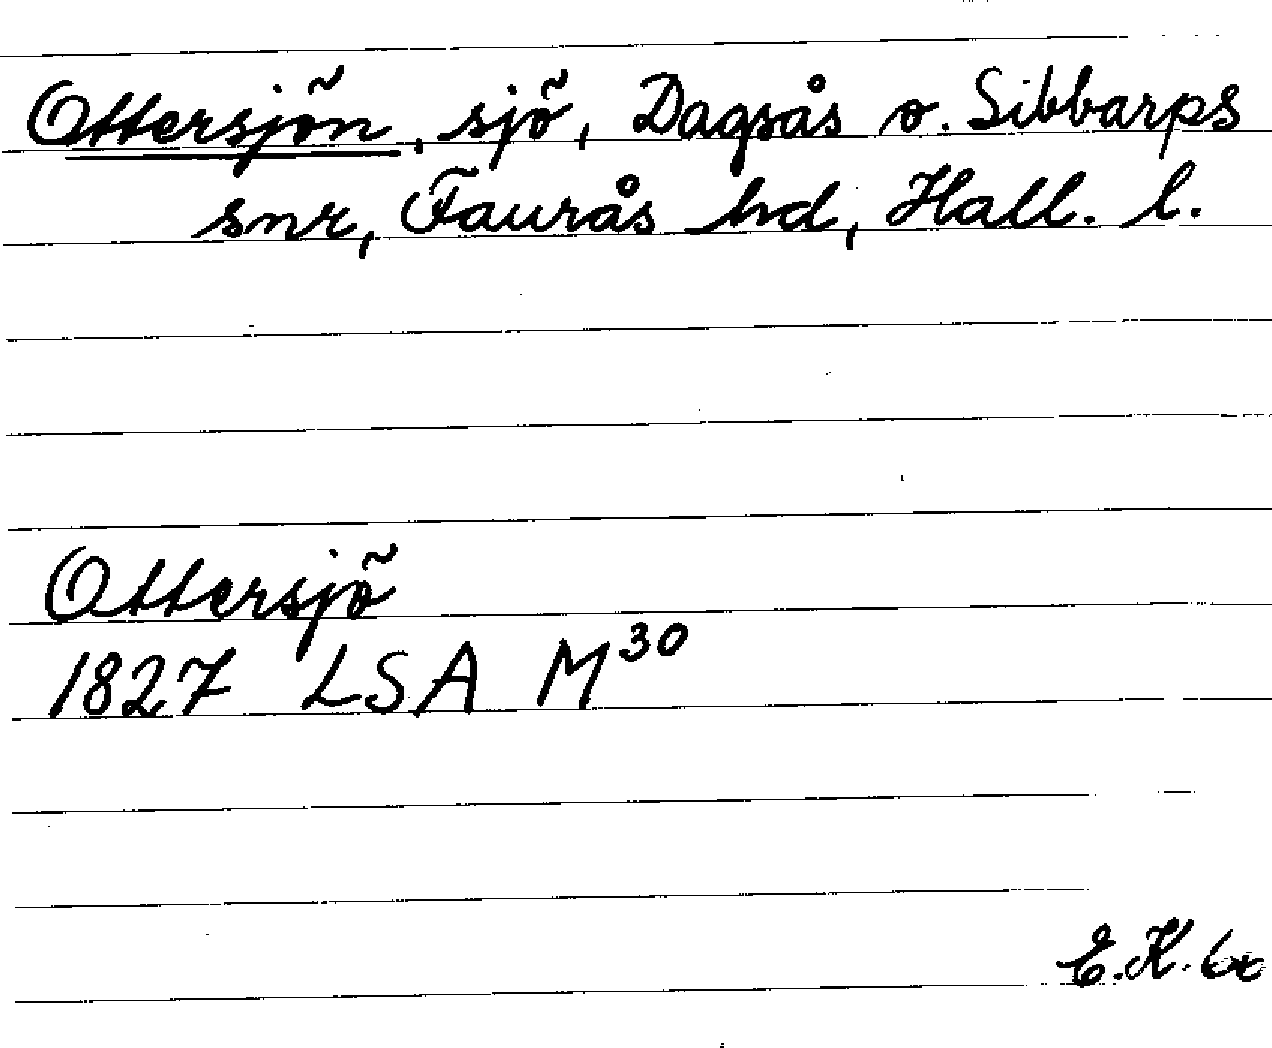 Ottersjön, sjö, Dagsås o. Sibbarps
snr, Faurås hd, Hall. l.
Ottersjö
1827 LSA M³⁰
E.K. 60